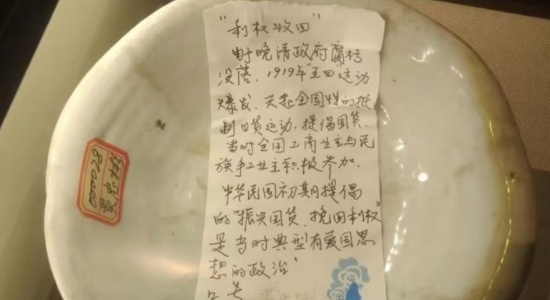 “利权收回”
由于晚清政府腐朽
没落、1919年“五四运动
爆发、兴起全国性的抵
制日货运动、提倡国货、
当时全国工商业主与民
族手工业主积极参加、
中华民国初期提倡
的“振兴国货、挽回利权”
是当时典型有爱国思
想的政治